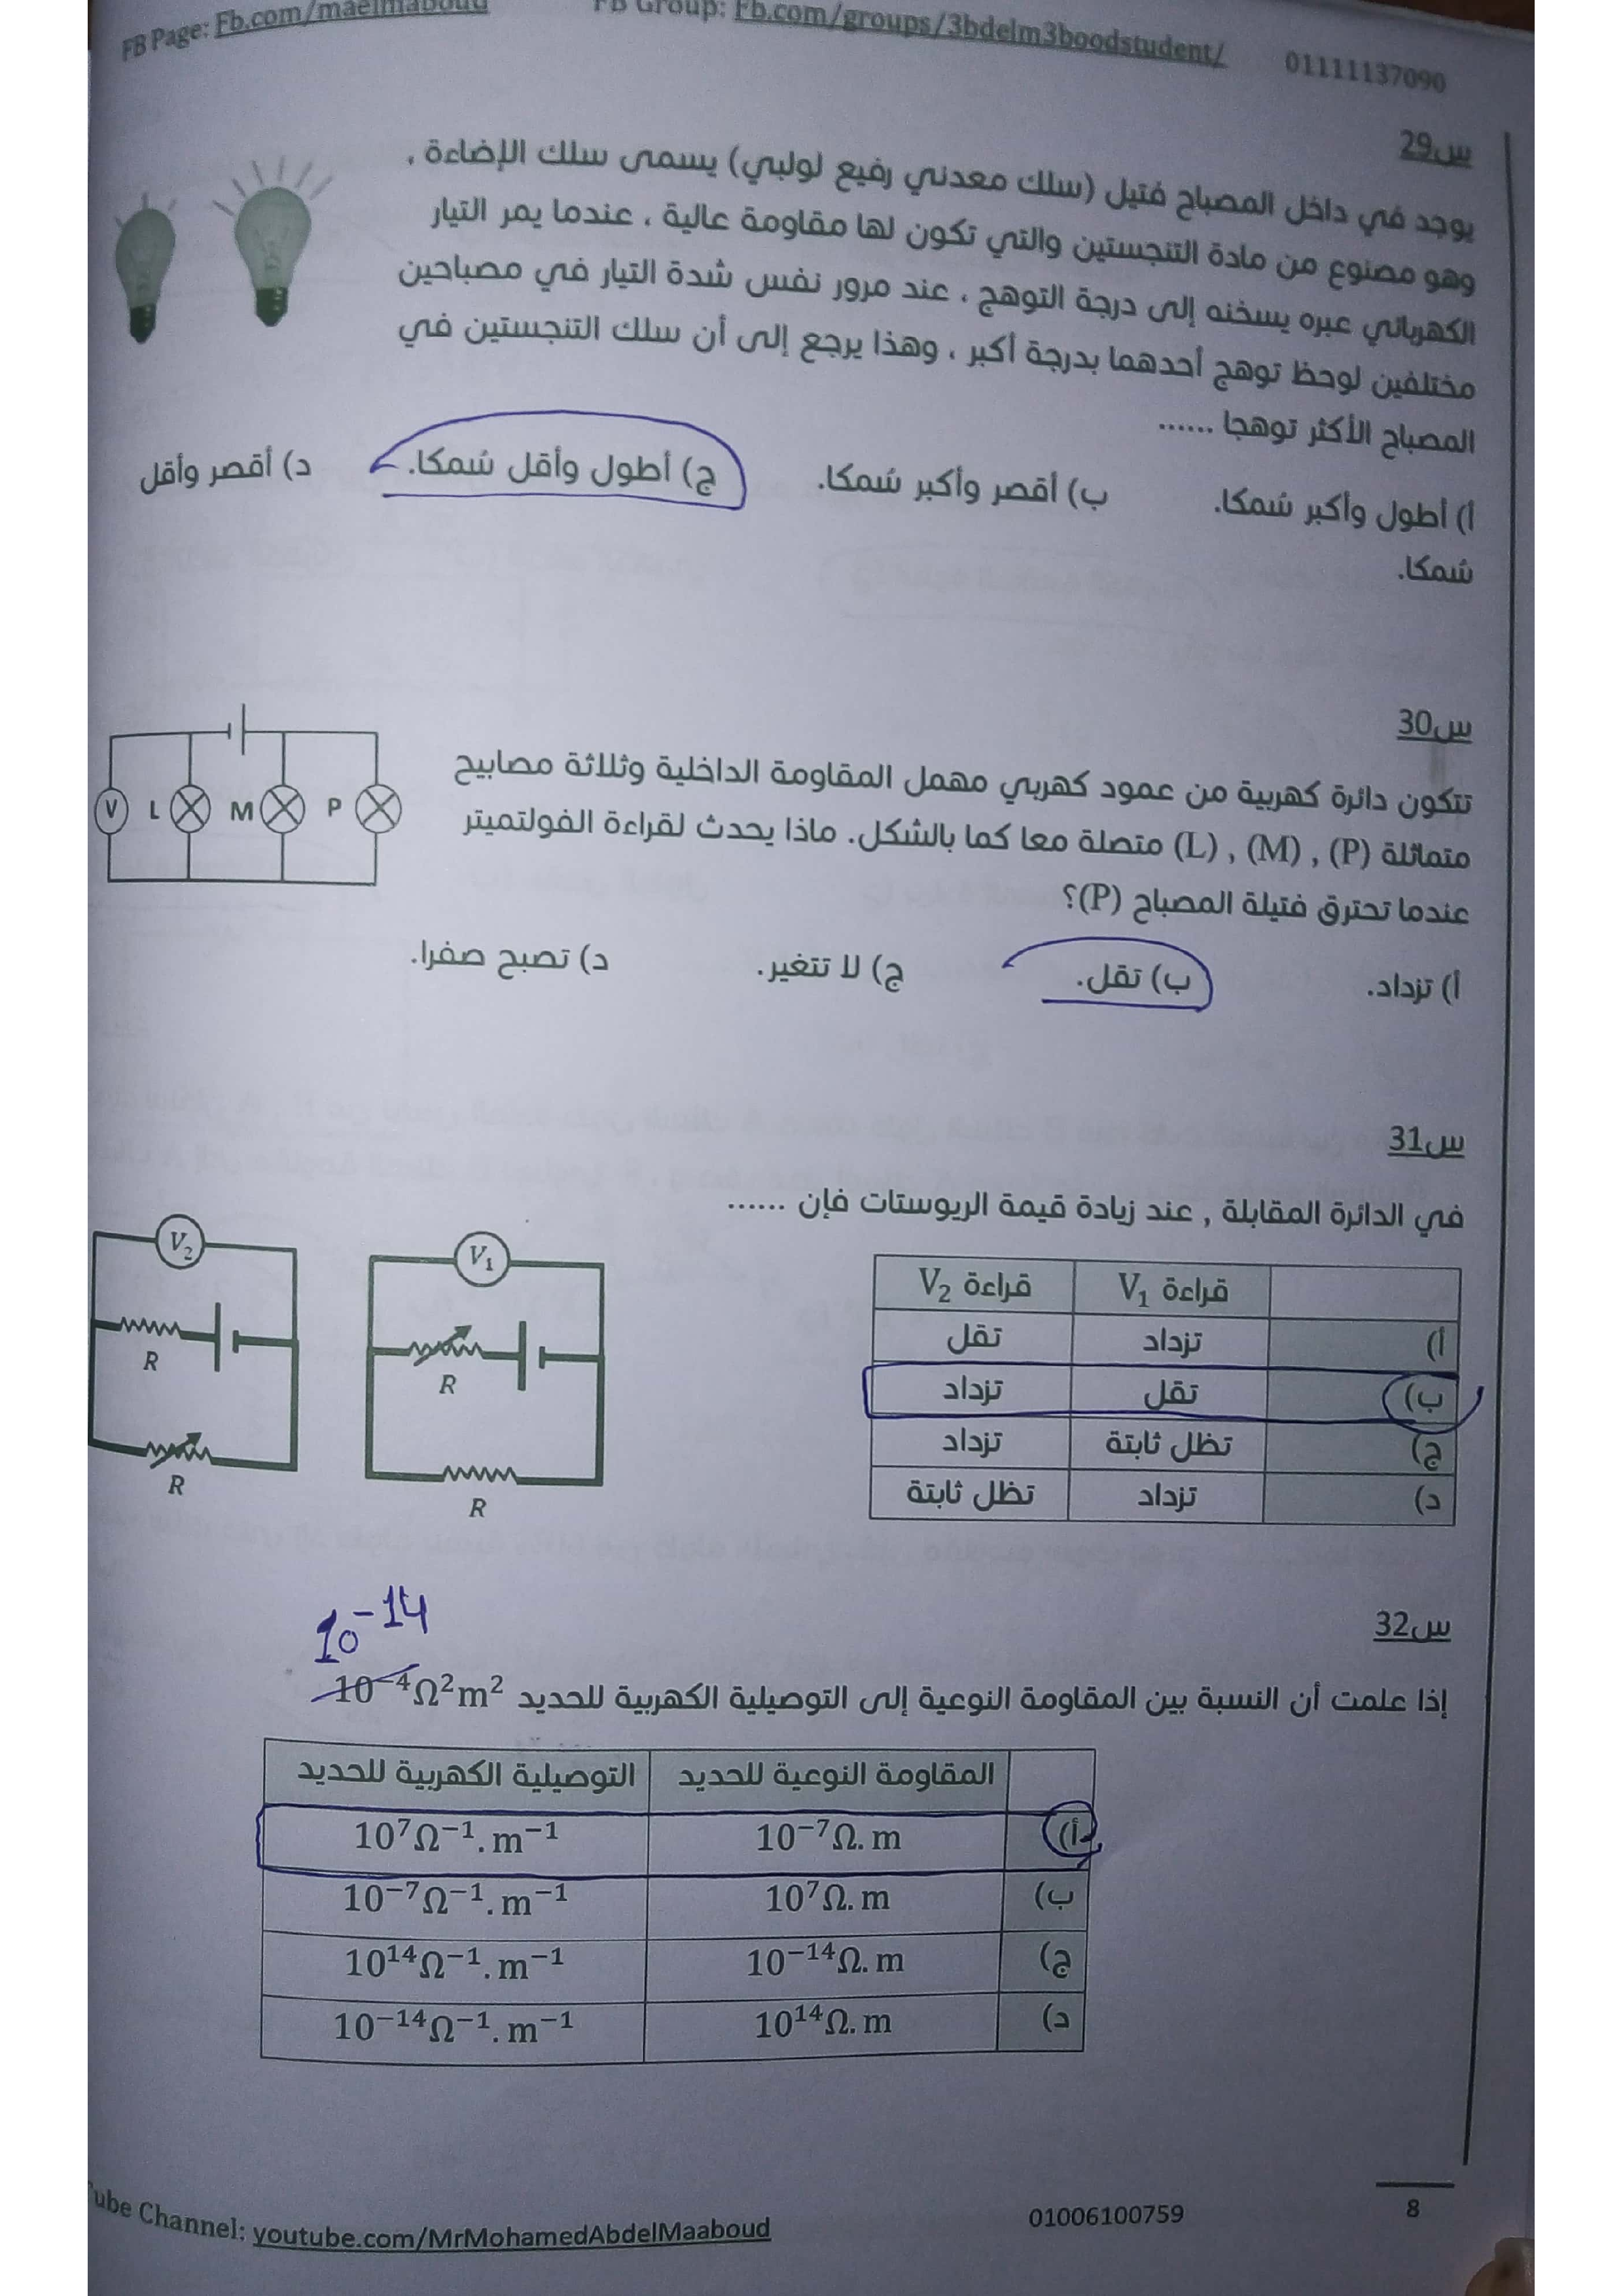 FB Page: Fb.com/maelmaboud FB Group: Fb.com/groups/3bdelm3boodstudent/ 01111137090
س29
يوجد في داخل المصباح فتيل (سلك معدني رفيع لولبي) يسمى سلك الإضاءة ،
وهو مصنوع من مادة التنجستين والتي تكون لها مقاومة عالية ، عندما يمر التيار
الكهربائي عبره يسخنه إلى درجة التوهج ، عند مرور نفس شدة التيار في مصباحين
مختلفين لوحظ توهج أحدهما بدرجة أكبر ، وهذا يرجع إلى أن سلك التنجستين في
المصباح الأكثر توهجا ......
أ) أطول وأكبر سُمكا. ب) أقصر وأكبر سُمكا. ج) أطول وأقل سُمكا. د) أقصر وأقل
سُمكا.
س30
تتكون دائرة كهربية من عمود كهربي مهمل المقاومة الداخلية وثلاثة مصابيح
متماثلة (P) , (M) , (L) متصلة معا كما بالشكل. ماذا يحدث لقراءة الفولتميتر
عندما تحترق فتيلة المصباح (P)؟
V L M P
أ) تزداد. ب) تقل. ج) لا تتغير. د) تصبح صفرا.
س31
في الدائرة المقابلة , عند زيادة قيمة الريوستات فإن ......
قراءة V₁ قراءة V₂
أ) تزداد تقل
ب) تقل تزداد
ج) تظل ثابتة تزداد
د) تزداد تظل ثابتة
V₂ V₁
R R
R R
س32
10⁻¹⁴
إذا علمت أن النسبة بين المقاومة النوعية إلى التوصيلية الكهربية للحديد 10⁻⁴Ω²m²
المقاومة النوعية للحديد التوصيلية الكهربية للحديد
أ) 10⁻⁷Ω. m 10⁷Ω⁻¹. m⁻¹
ب) 10⁷Ω. m 10⁻⁷Ω⁻¹. m⁻¹
ج) 10⁻¹⁴Ω. m 10¹⁴Ω⁻¹. m⁻¹
د) 10¹⁴Ω. m 10⁻¹⁴Ω⁻¹. m⁻¹
8
ube Channel: youtube.com/MrMohamedAbdelMaaboud 01006100759